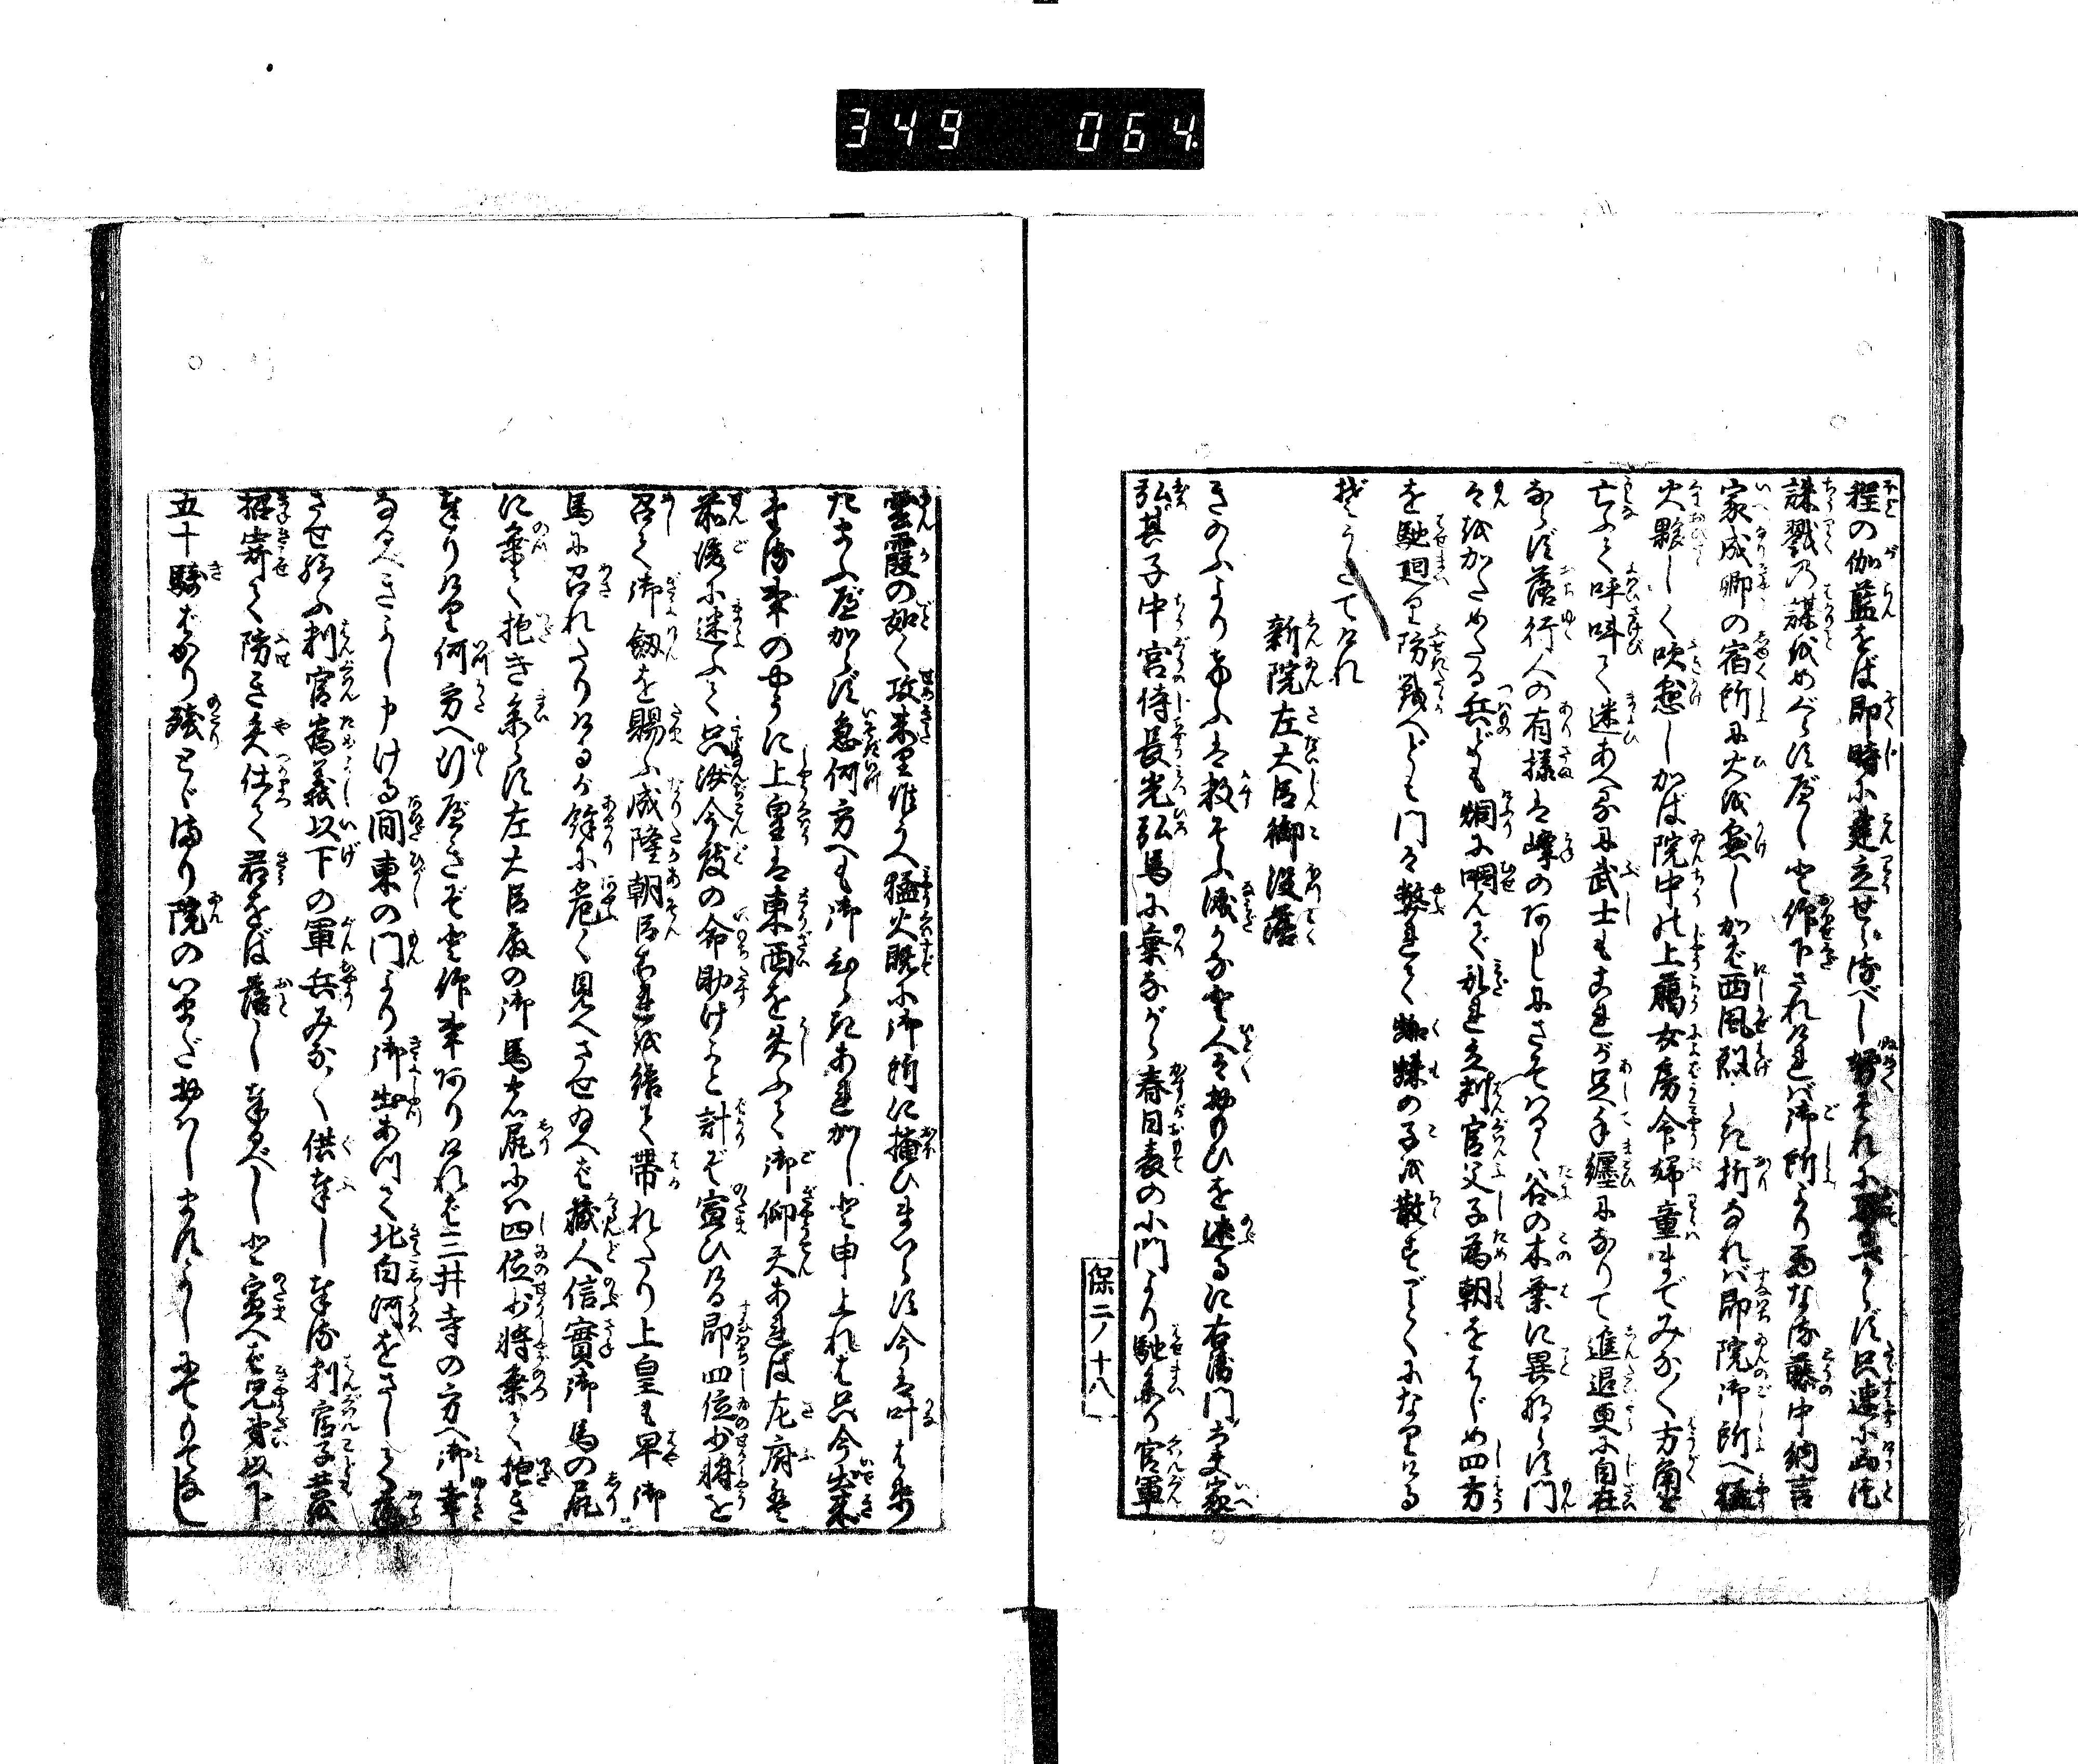 349 064
程の伽藍をば即時に建立せらるべし努々それに恐べからず只速に凶徒
誅戮の謀をめぐらすべしと仰下されければ御所より西なる藤中納言
家成卿の宿所に火を懸しかば西風烈しき折なれば即院御所へ猛
火夥しく吹懸しかば院中の上臈女房令婦童までみなく方角を
亡ふて呼叫て迷あへるに武士もこれが足手纏になりて進退更に自在
ならず落行人の有様は峰のあらしにさそはるゝ谷の木葉に異ならず門
々をかためたる兵ども烟に咽んで乱れ立判官父子為朝をはじめ四方
を馳廻り防戦へども門々敗れて蜘蛛の子を散すごとくになりける
ぞうたてけれ
新院左大臣御没落
きのふよりけふは数そふ涙かな人々物思ひを述るに右衛門大夫家
弘其子中宮侍長光弘馬に乗ながら春日表の小門より馳参り官軍
保二ノ十八
雲霞の如く攻来り候上猛火既に御所に掩ひまいらす今は叶はせ
たまふべからず急何方へも御ひらきあれかしと申上れば只今出来
たる事のやうに上皇は東西を失ふて御仰天あれば左府は
前後に迷ふて只汝今度の命助けよと計ぞ宣ひける即四位少将を
召て御劔を賜ふ成隆朝臣これを給て帯れたり上皇も早御
馬に召れたりけるが餘に危く見へさせ給へば蔵人信實御馬の尻
に乗て抱き参らす左大臣殿の御馬の尻には四位少将乗て抱き
奉りける何方へ行べきぞと仰事ありければ三井寺の方へ御幸
なるべきよし申ける間東の門より御出あつて北白河をさして落
させ給ふ判官為義以下の軍兵みなく供奉し奉る判官子共を
招寄て防き矢仕て君をば落し奉るべしと宣へば兄弟以下
五十騎ばかり残とゞまり院のいまだ